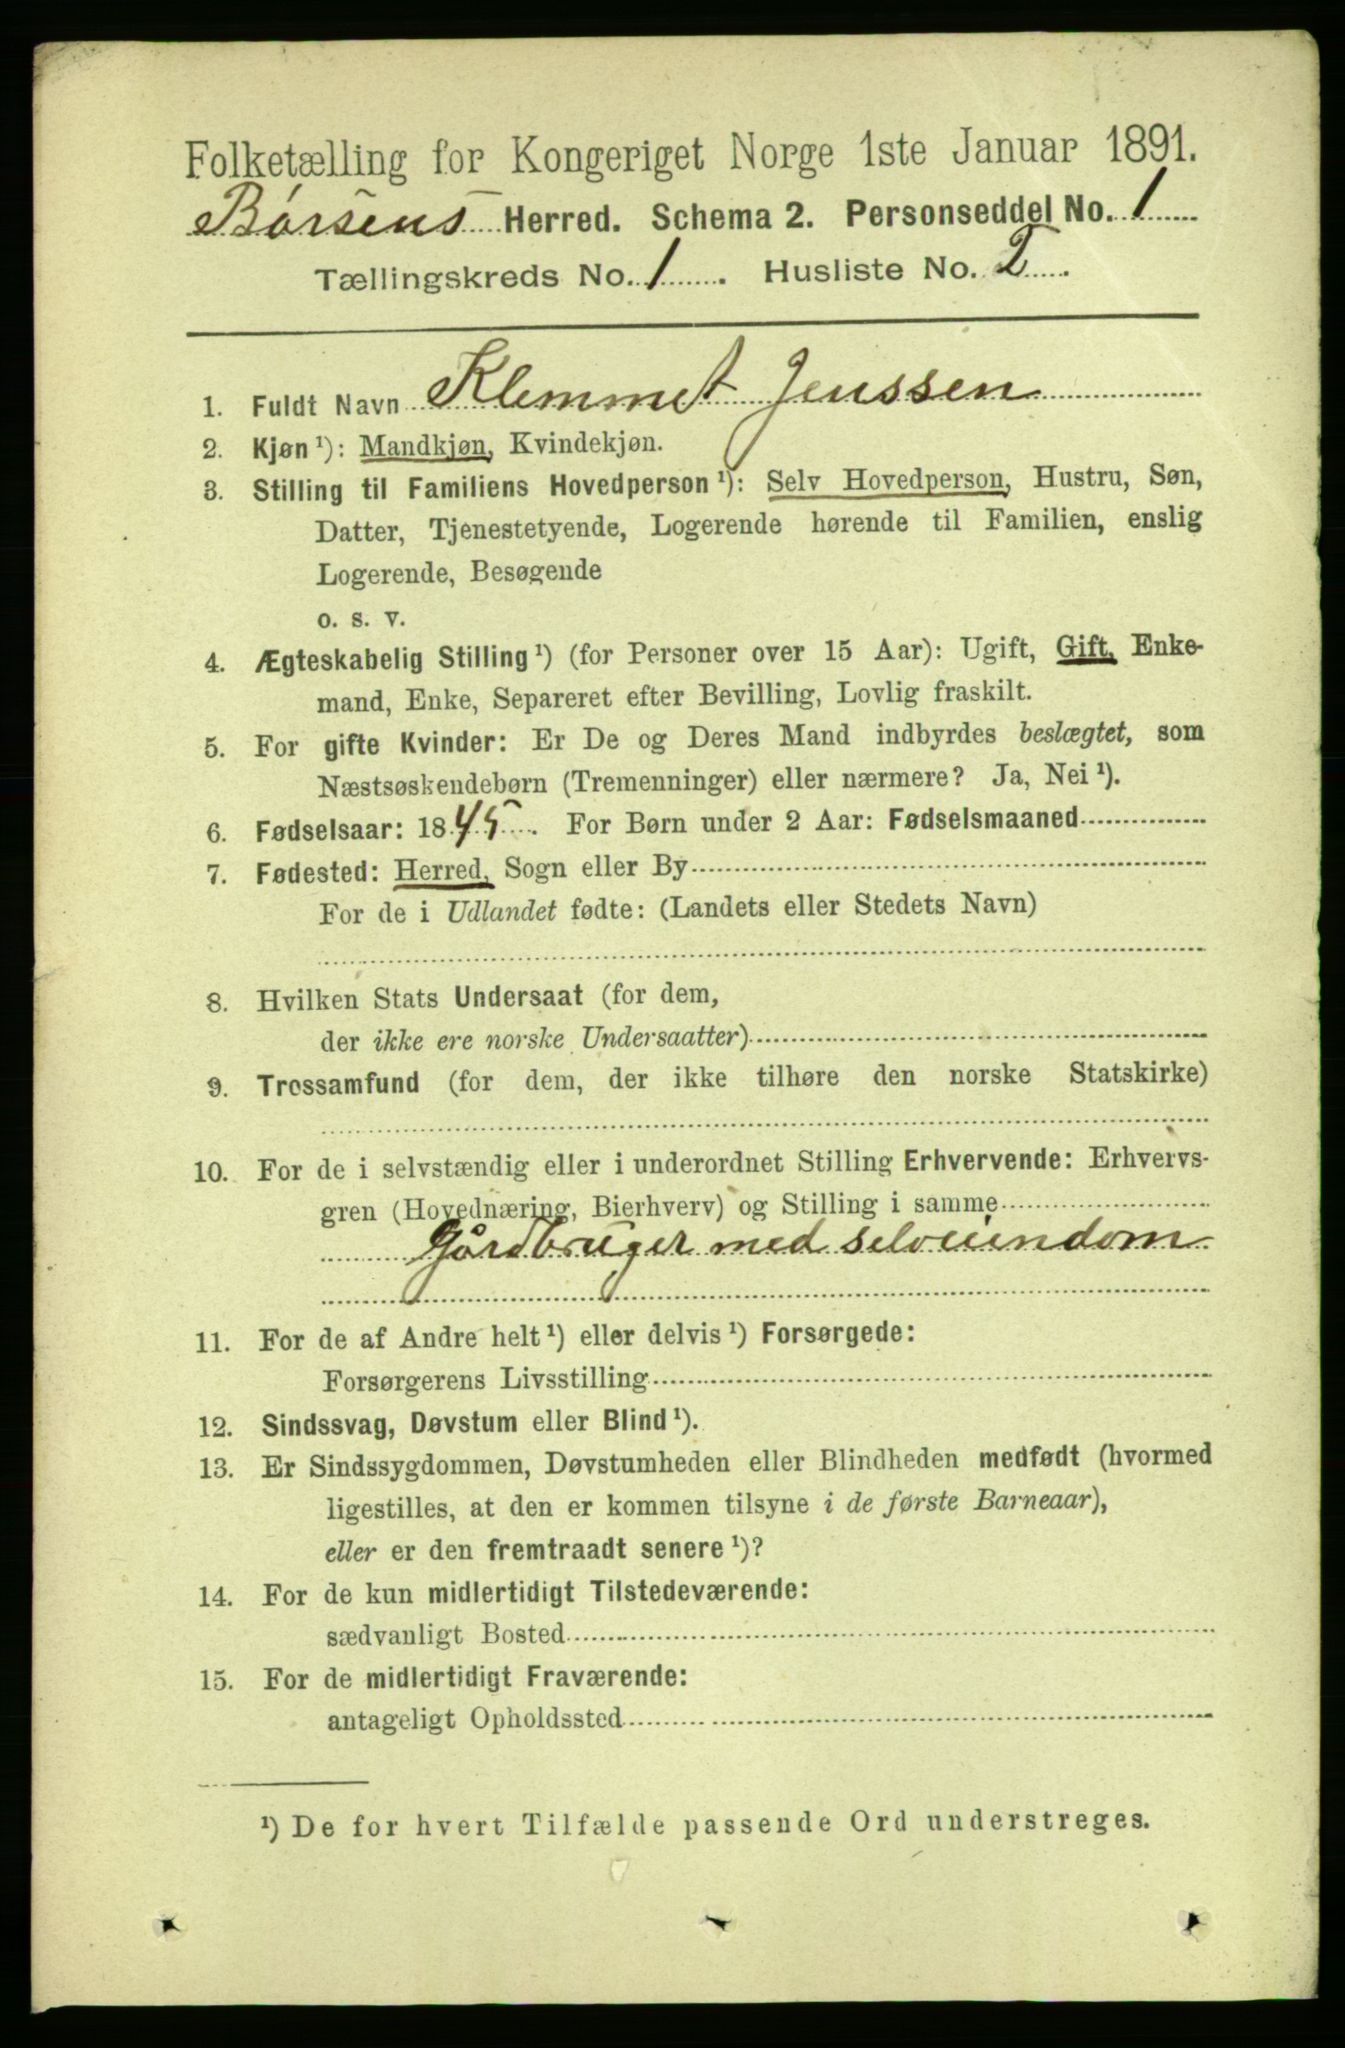 Folketælling for Kongeriget Norge 1ste Januar 1891.
Børsens Herred. Schema 2. Personseddel No. 1
Tællingskreds No. 1. Husliste No. 2.
1. Fuldt Navn Klemmet Jenssen
2. Kjøn ¹): Mandkjøn, Kvindekjøn.
3. Stilling til Familiens Hovedperson ¹): Selv Hovedperson, Hustru, Søn,
Datter, Tjenestetyende, Logerende hørende til Familien, enslig
Logerende, Besøgende
o. s. v.
4. Ægteskabelig Stilling ¹) (for Personer over 15 Aar): Ugift, Gift, Enke-
mand, Enke, Separeret efter Bevilling, Lovlig fraskilt.
5. For gifte Kvinder: Er De og Deres Mand indbyrdes beslægtet, som
Næstsøskendebørn (Tremenninger) eller nærmere? Ja, Nei ¹).
6. Fødselsaar: 1845. For Børn under 2 Aar: Fødselsmaaned
7. Fødested: Herred, Sogn eller By
For de i Udlandet fødte: (Landets eller Stedets Navn)
8. Hvilken Stats Undersaat (for dem,
der ikke ere norske Undersaatter)
9. Trossamfund (for dem, der ikke tilhøre den norske Statskirke)
10. For de i selvstændig eller i underordnet Stilling Erhvervende: Erhvervs-
gren (Hovednæring, Bierhverv) og Stilling i samme
Gårdbruger med selveiendom
11. For de af Andre helt ¹) eller delvis ¹) Forsørgede:
Forsørgerens Livsstilling
12. Sindssvag, Døvstum eller Blind ¹).
13. Er Sindssygdommen, Døvstumheden eller Blindheden medfødt (hvormed
ligestilles, at den er kommen tilsyne i de første Barneaar),
eller er den fremtraadt senere ¹)?
14. For de kun midlertidigt Tilstedeværende:
sædvanligt Bosted
15. For de midlertidigt Fraværende:
antageligt Opholdssted
¹) De for hvert Tilfælde passende Ord understreges.